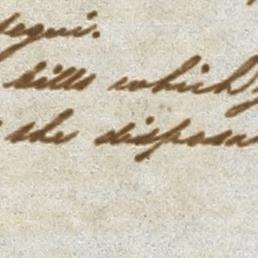 bills which
the disposa